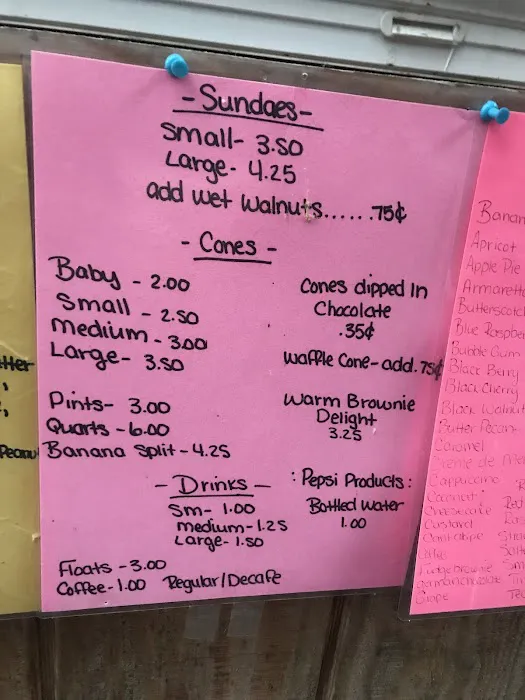 - Sundaes -
Small- 3.50
Large- 4.25
add wet walnuts......75¢
- Cones -
Baby - 2.00
Small - 2.50
Medium - 3.00
Large- 3.50
Cones dipped In
Chocolate
.35¢
Waffle Cone-add .75¢
Pints- 3.00
Quarts -6.00
Banana Split -4.25
Warm Brownie
Delight
3.25
- Drinks -
Sm- 1.00
medium-1.25
Large- 1.50
: Pepsi Products :
Bottled water
1.00
Floats -3.00
Coffee-1.00 Regular/Decafe
Banan
Apricot
Apple Pie
Amarett
Butterscotch
Blue Raspber
Bubble Gum
Black Berry
Black Cherry
Black Walnut
Butter Pecan
Caramel
Creme de Me
Cappuccino
Coconut
Cheesecake
Custard
Cantalope
Coffee
Fudge brownie
German chocolate
Grape
tter
Peanu